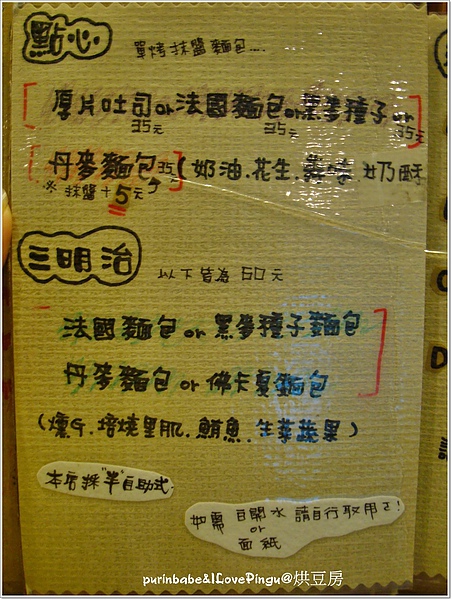 點心
單烤抹醬麵包....
厚片吐司or法國麵包or黑麥種子or
35元 35元 35元
丹麥麵包35元(奶油.花生.蒜味.奶酥
※抹醬+5元
三明治
以下皆為60元
法國麵包or黑麥種子麵包
丹麥麵包or佛卡夏麵包
(燻G.培燒里肌.鮪魚.生菜蔬果)
本店採"半"自助式.
如需白開水請自行取用ㄛ!
or
面紙
purinbabe&ILovePingu@烘豆房